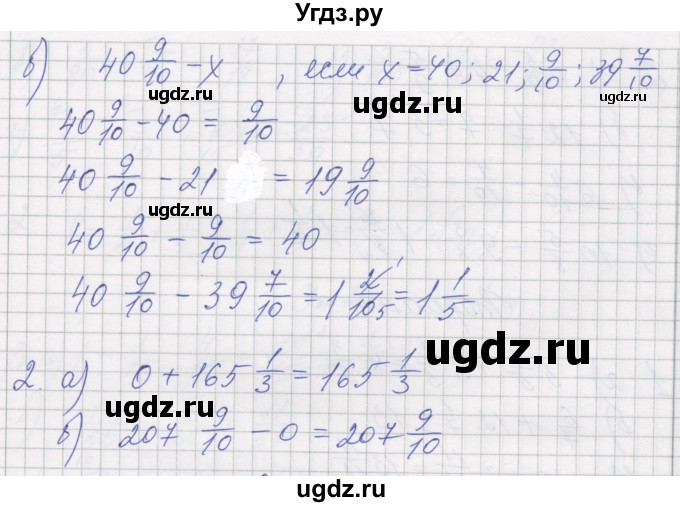 Угдз.ру
в) 40 9/10 - x , если x = 40; 21; 9/10; 39 7/10
ugdz.ru
40 9/10 - 40 = 9/10
ugdz.ru
40 9/10 - 21 = 19 9/10
ugdz.ru
40 9/10 - 9/10 = 40
40 9/10 - 39 7/10 = 1 2/10 = 1 1/5
ugdz.ru
2. а) 0 + 165 1/3 = 165 1/3
ugdz.ru
б) 207 9/10 - 0 = 207 9/10
ugdz.ru
ugdz.ru